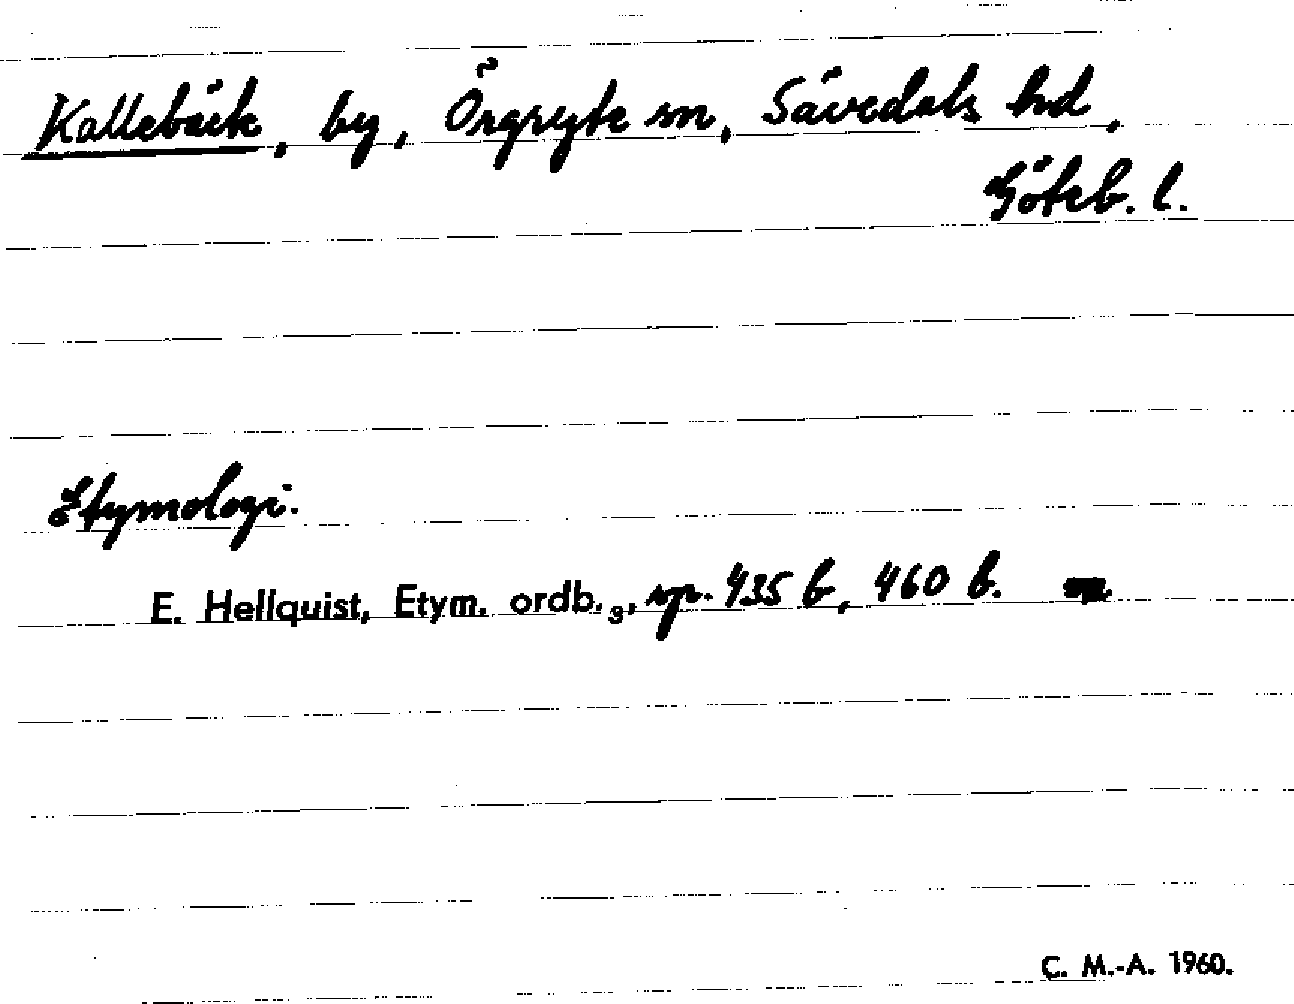 Kallebäck, by, Örgryte sn, Sävedals hd,
Göteb. l.
Etymologi.
E. Hellquist, Etym. ordb.₃, sp. 435 b, 460 b.
C. M.-A. 1960.